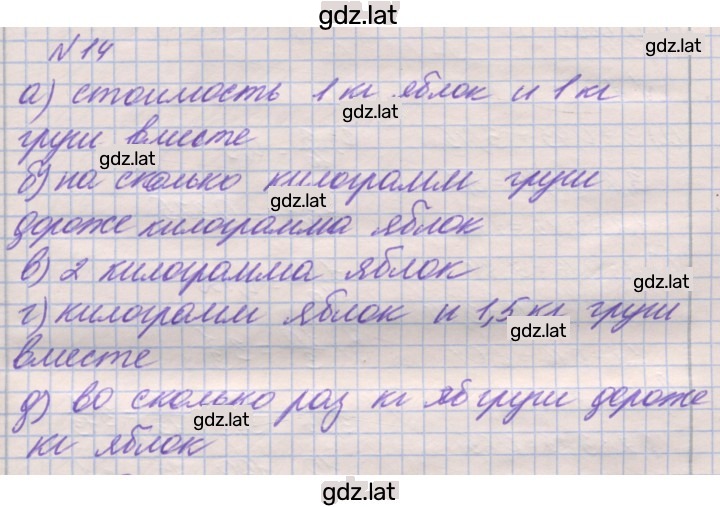 gdz.lat
N 14
gdz.lat
а) стоимость 1 кг яблок и 1 кг
gdz.lat
груш вместе
gdz.lat
б) на сколько килограмм груш
gdz.lat
дороже килограмма яблок
в) 2 килограмма яблок
gdz.lat
г) килограмм яблок и 1,5 кг груш
gdz.lat
вместе
д) во сколько раз кг яб груш дороже
gdz.lat
кг яблок
gdz.lat